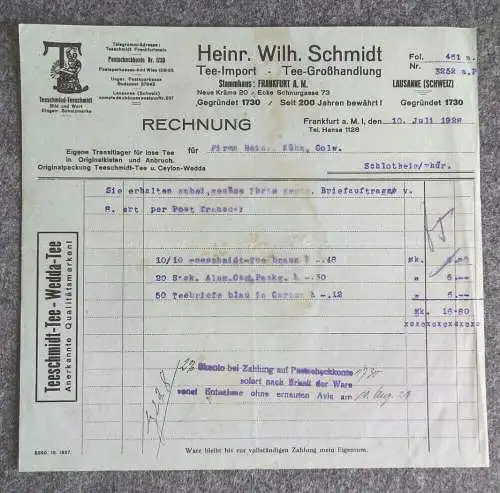 Telegramm-Adresse:
Teeschmidt Frankfurtmain
Postscheckkonto Nr. 1730
Postsparkassen-Amt Wien
Ungar. Postsparkasse
Budapest
Lausanne (Schweiz)
Teeschmied-Teeschmidt
Bild und Wort
Eingetr. Schutzmarke
Heinr. Wilh. Schmidt
Tee-Import - Tee-Großhandlung
Stammhaus: FRANKFURT A. M.
Neue Kräme 20 / Ecke Schnurgasse 73
Gegründet 1730 / Seit 200 Jahren bewährt!
Fol. 461 a.
No. 3252 a.F
LAUSANNE (SCHWEIZ)
Gegründet 1730
RECHNUNG
Frankfurt a. M., den 10. Juli 1928
Tel. Hansa 1128
Eigene Transitlager für lose Tee
in Originalkisten und Anbruch.
Originalpackung Teeschmidt-Tee u. Ceylon-Wedda
für Firma Heinr. Kühn, Colw.
Schlotheim/Thür.
Sie erhalten anbei, gemäss Ihres Briefauftrages v.
per Post franco:
10/10 Teeschmidt-Tee braun à -.48
20 Stck. Alum. à -.30 " 6.--
50 Teebriefe blau in Carton à -.12 " 6.--
Mk. 16.80
xoxoxoxoxoxoxox
Teeschmidt-Tee - Wedda-Tee
Anerkannte Qualitätsmarken!
Skonto bei Zahlung auf Postscheckkonto 1730
sofort nach Erhalt der Ware
sonst Entnahme ohne erneuten Avis am
Ware bleibt bis zur vollständigen Zahlung mein Eigentum.
5000. 10. 1927.